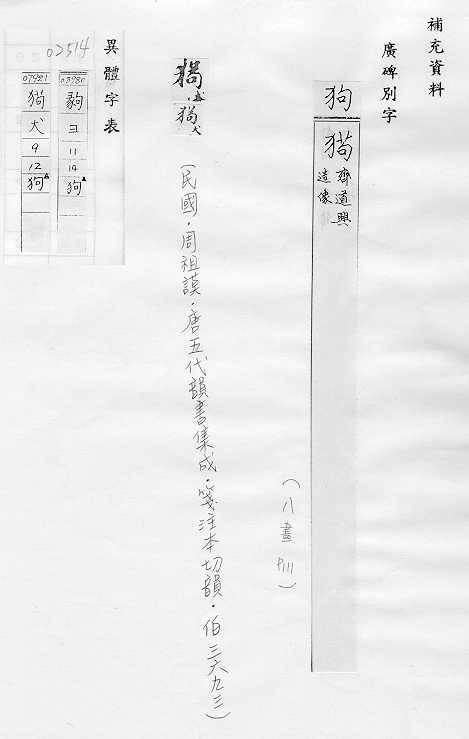 補充資料
廣碑別字
狗
㺃 齊道興
造像
(八畫 P111)
(民國.周祖謨.唐五代韻書集成.箋注本切韻.伯三六九三)
異體字表
02514
03980
11
14
狗▲
07921
㺃
犬
9
12
狗▲